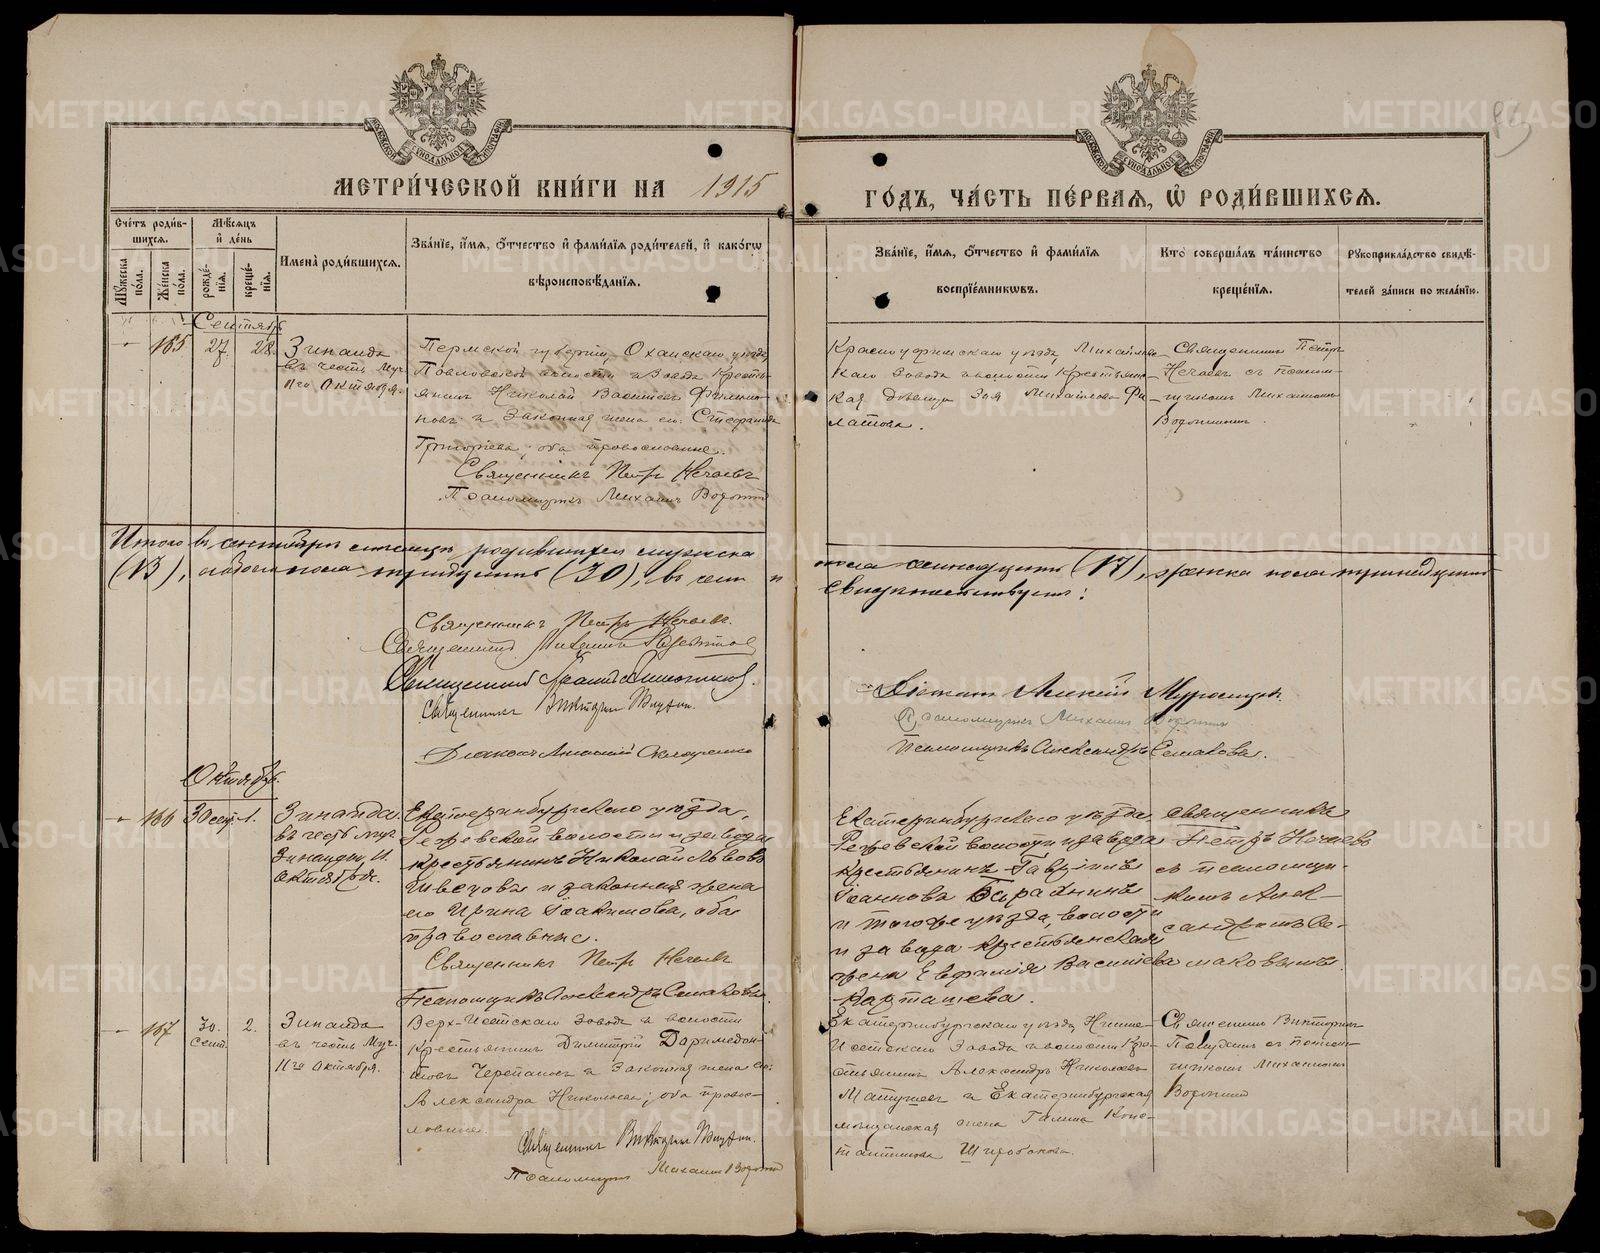 МЕТРИ́ЧЕСКОЙ КНИ́ГИ НА 1915
ГО́ДЪ, ЧА́СТЬ ПЕ́РВАЯ, Ѡ РОДИ́ВШИХСЯ.
Сче́тъ роди́в-
шихся.
Мꙋжеска
пола.
Же́нска
пола.
Мѣ́сяцъ
и҆ де́нь
рожде́-
нїя.
креще́-
нїя.
Имена̀ роди́вшихся.
Зва́нїе, и҆́мя, ѻ҆́тчество и҆ фами́лїя роди́телей, и҆ како́гѡ
вѣроисповѣ́данїя.
Зва́нїе, и҆́мя, ѻ҆́тчество и҆ фами́лїя
воспрїе́мникѡвъ.
Кто̀ соверша́лъ та́инство
креще́нїя.
Рꙋкоприкла́дство свидѣ́-
телей за́писи по жела́нїю.
Сентябрь
165 27 28.
Зинаида
въ честь муч.
11го Октября.
Пермской губерніи, Оханскаго уѣзда,
Павловской волости и Завода Кресть-
янинъ Николай Васильевъ Филимо-
новъ и Законная жена его Стефанида
Григорьева, оба православные.
Священникъ Петръ Нечаевъ
Псаломщикъ Михаилъ
Красноуфимскаго уѣзда, Михайлов-
скаго Завода и волости Крестьянс-
кая дѣвица Зоя Михайлова Фи-
латова.
Священникъ Петръ
Нечаевъ съ псалом-
щикомъ Михаиломъ
Итого въ сентябрѣ мѣсяцѣ родившихся мужеска
пола семнадцать (17), женска пола тринадцать
(13), обоего пола тридцать (30), въ чемъ и
свидѣтельствуемъ:
Священникъ Петръ Нечаевъ.
Священникъ Михаилъ
Священникъ
Священникъ Викторинъ
Діаконъ
Діаконъ Алексій
Псаломщикъ Михаилъ
Псаломщикъ Александръ Семаковъ.
Октябрь.
166 30 сент. 1.
Зинаида.
въ честь муч.
Зинаиды, 11
октября.
Екатеринбургскаго уѣзда,
Режевской волости и завода
крестьянинъ Николай Львовъ
Швецовъ и законная жена
его Ирина Іоакимова, оба
православные.
Священникъ Петръ Нечаевъ
Псаломщикъ Александръ Семаковъ.
Екатеринбургскаго уѣзда
Режевской волости и завода
крестьянинъ Гавріилъ
Іоанновъ Барахнинъ
и того же уѣзда, волости
и завода крестьянская
жена Евфалія Васильева
Карташева.
священникъ
Петръ Нечаевъ
съ псаломщи-
комъ Алек-
сандромъ Се-
маковымъ.
167 30. 2.
сент.
Зинаида
въ честь Муч.
11го Октября.
Верх-Исетскаго Завода и волости
Крестьянинъ Димитрій Даримедон-
товъ Черепановъ и Законная жена его
Александра Николаева; оба правос-
лавные.
Священникъ Викторинъ
Псаломщикъ Михаилъ
Екатеринбургскаго уѣзда, Нижне-
Исетскаго Завода и волости Кре-
стьянинъ Александръ Николаевъ
и Екатеринбургская
мѣщанская жена Галина Конс-
тантинова Широбокова.
Священникъ Викторинъ
съ псалом-
щикомъ Михаиломъ
METRIKI.GASO-URAL.RU